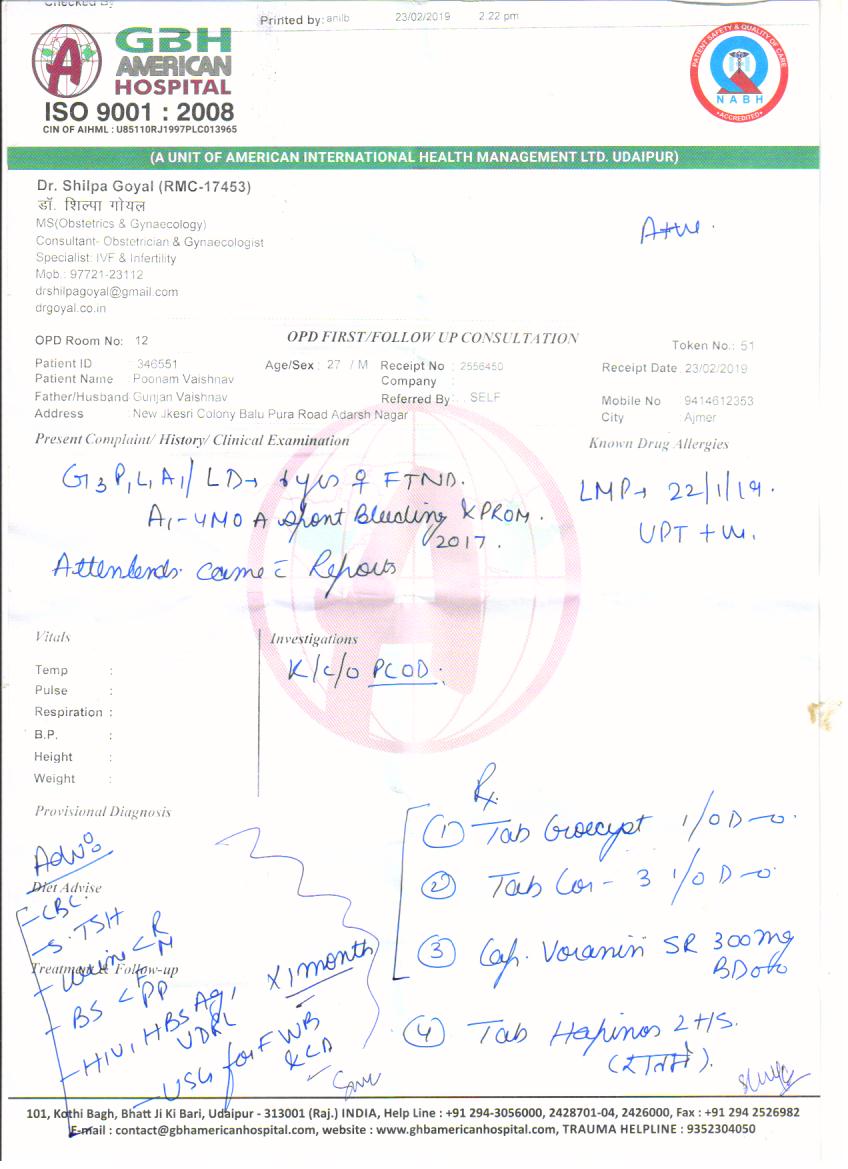 Checked By
Printed by: anilb 23/02/2019 2:22 pm
GBH
AMERICAN
HOSPITAL
ISO 9001 : 2008
CIN OF AIHML : U85110RJ1997PLC013965
PATIENT SAFETY & QUALITY OF CARE
NABH
ACCREDITED
(A UNIT OF AMERICAN INTERNATIONAL HEALTH MANAGEMENT LTD. UDAIPUR)
Dr. Shilpa Goyal (RMC-17453)
डॉ. शिल्पा गोयल
MS(Obstetrics & Gynaecology)
Consultant- Obstetrician & Gynaecologist
Specialist: IVF & Infertility
Mob.: 97721-23112
drshilpagoyal@gmail.com
drgoyal.co.in
OPD Room No: 12 OPD FIRST/FOLLOW UP CONSULTATION Token No.: 51
Patient ID : 346551 Age/Sex : 27 / M Receipt No : 2556450 Receipt Date 23/02/2019
Patient Name : Poonam Vaishnav Company :
Father/Husband Gunjan Vaishnav Referred By : SELF Mobile No 9414612353
Address : New Jkesri Colony Balu Pura Road Adarsh Nagar City : Ajmer
Present Complaint/ History/ Clinical Examination Known Drug Allergies
G3 P1 L1 A1/ LD→ yrs ♀ FTND.
LMP→ 22/1/19.
A1 - 4MOA spont Bleeding & PROM.
2017.
UPT +ve.
Attendends came c̄ Reports
Vitals Investigations
K/c/o PCOD.
Temp :
Pulse :
Respiration :
B.P. :
Height :
Weight :
Provisional Diagnosis
Rx
Adv:
Diet Advise
- CBC
- S. TSH
- Urine < R M
Treatment & Follow-up
- BS < F PP
- HIV, HBsAg, VDRL
- USG for FWB & CA
x 1 month
① Tab 1/OD
② Tab Cor-3 1/OD
③ Cap. SR 300mg
BD
④ Tab 2 HS.
101, Kothi Bagh, Bhatt Ji Ki Bari, Udaipur - 313001 (Raj.) INDIA, Help Line : +91 294-3056000, 2428701-04, 2426000, Fax : +91 294 2526982
E-mail : contact@gbhamericanhospital.com, website : www.ghbamericanhospital.com, TRAUMA HELPLINE : 9352304050